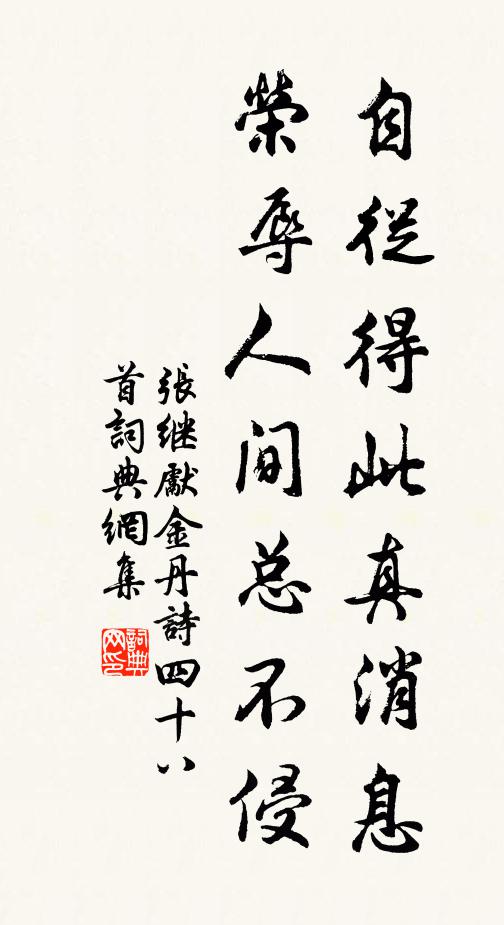 自從得此真消息
榮辱人间总不侵
張继獻金丹詩四十八
首詞典網集
詞典
网印